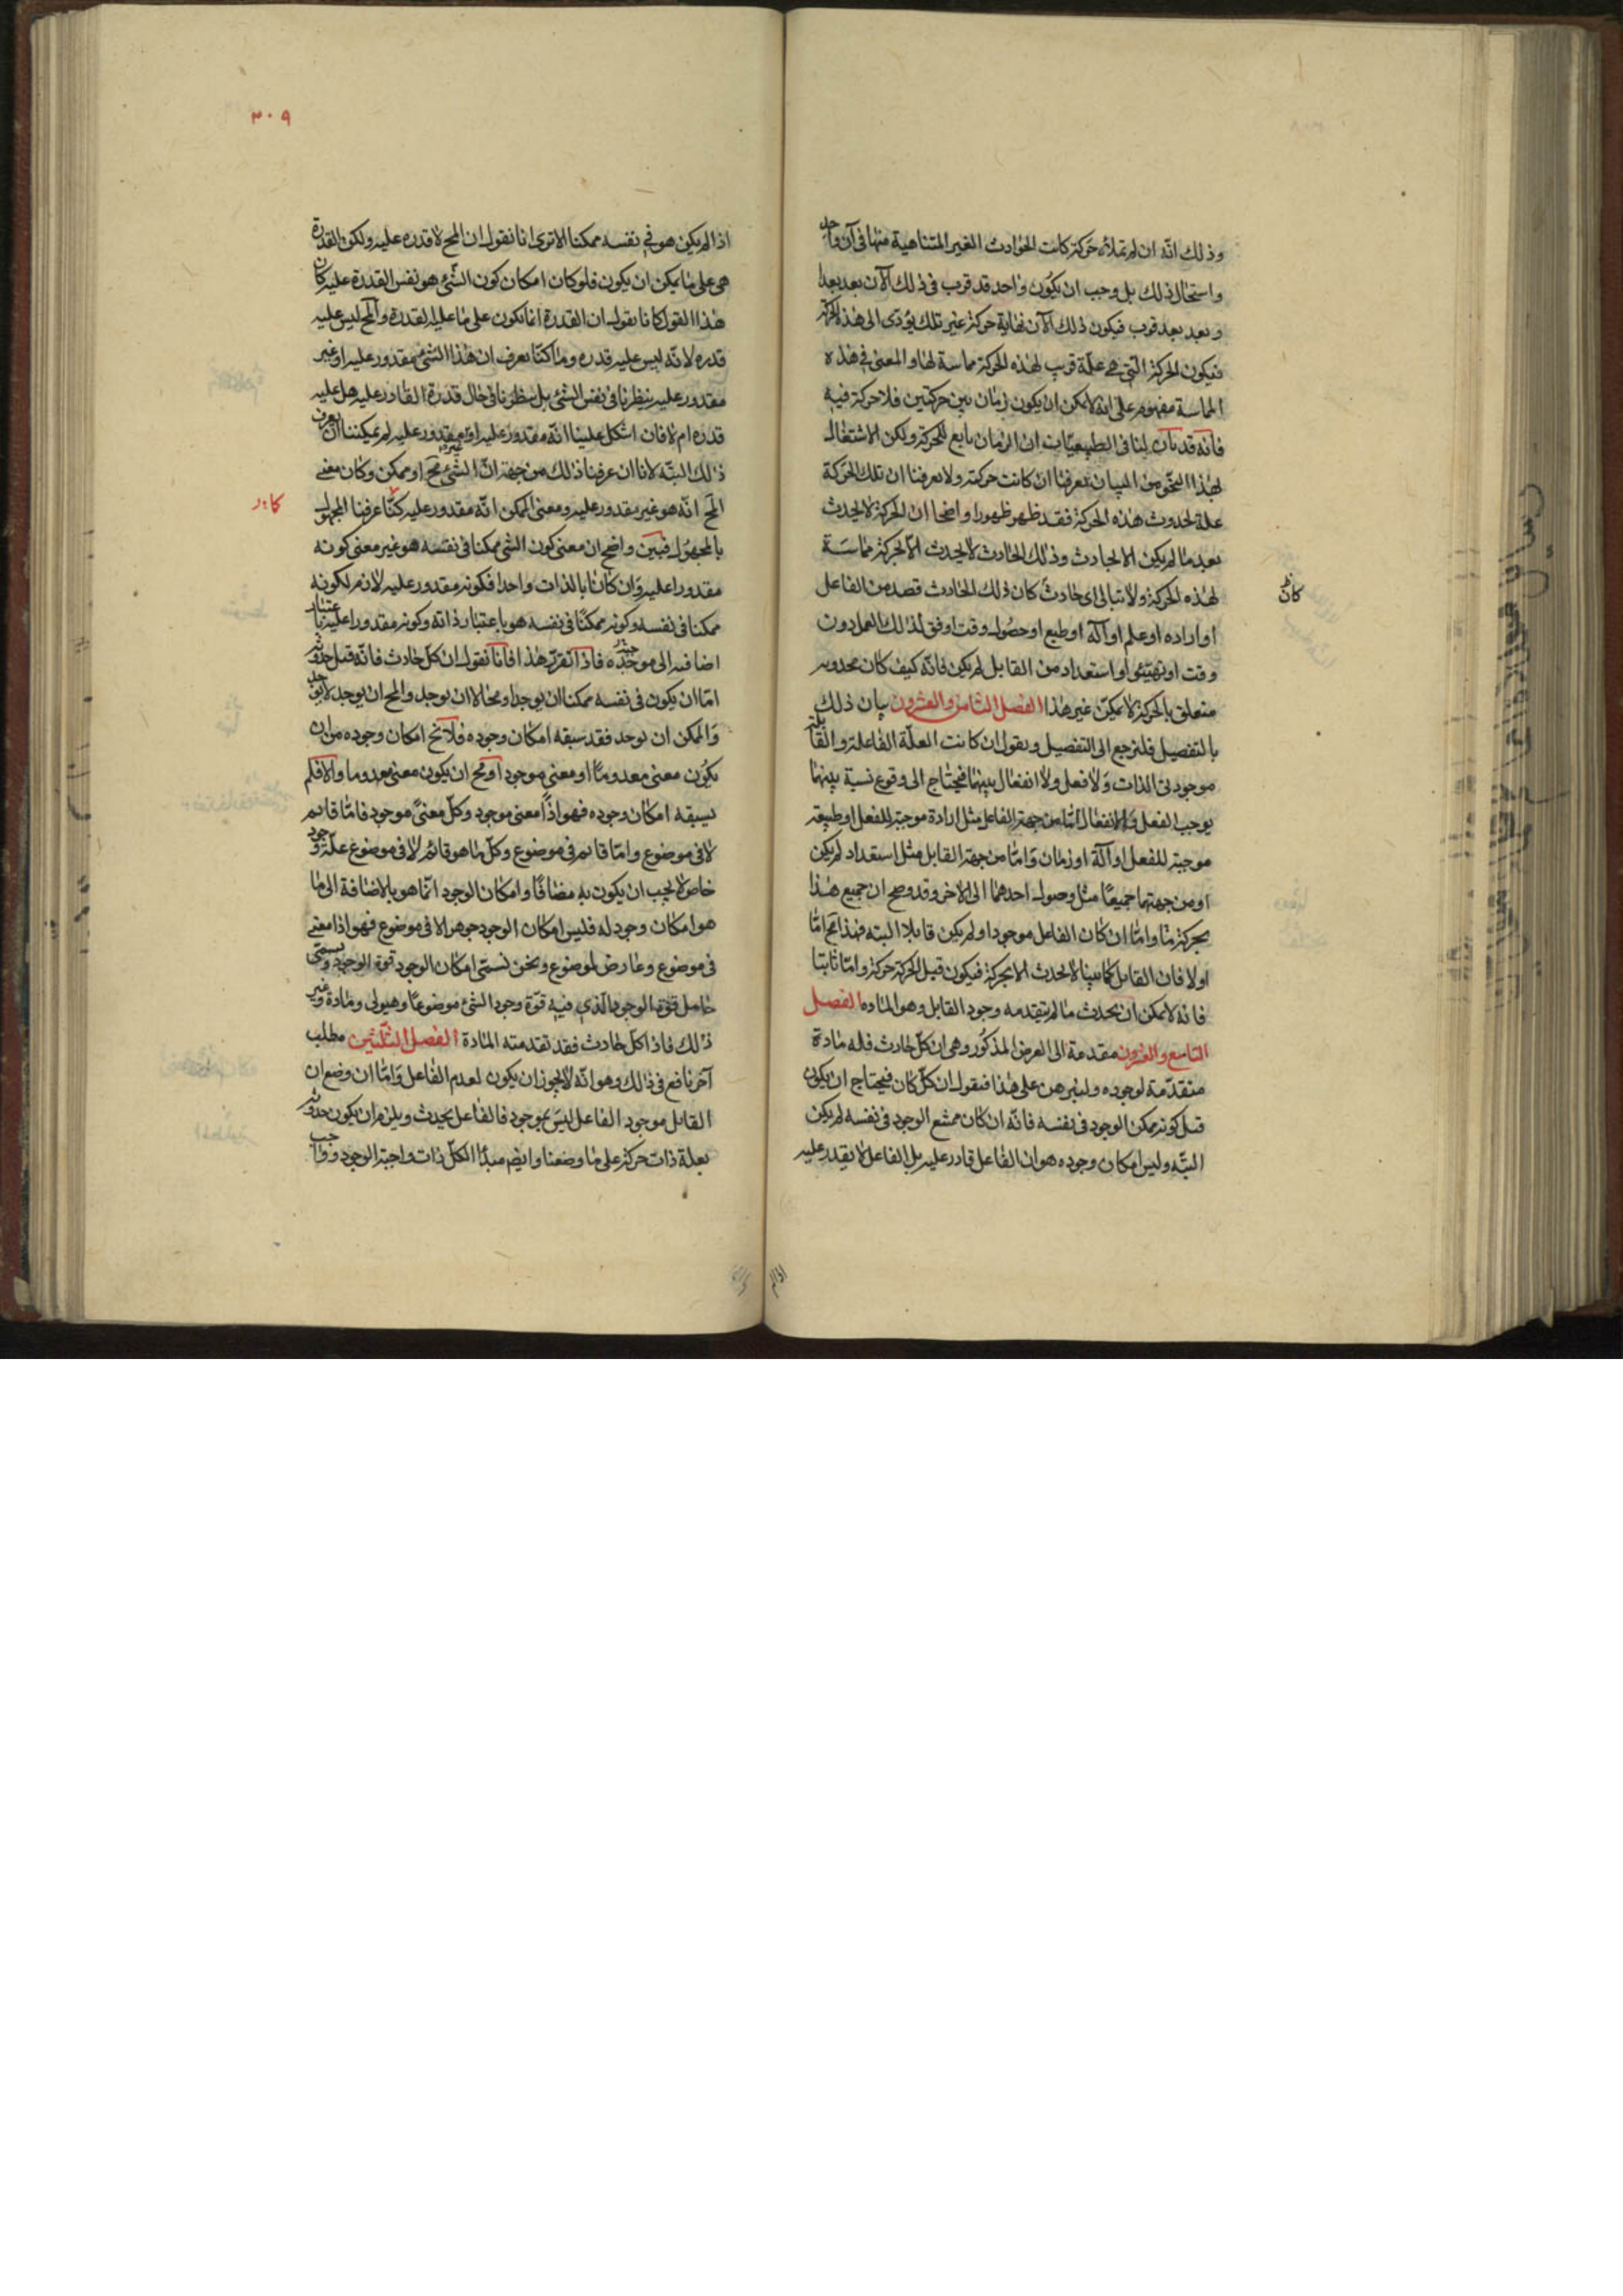 وذلك انّه ان لم تماسّه حركة كانت الحوادث الغير المتناهية منها فى آن واحد
واستحال ذلك بل وجب ان يكون واحد قد قرب فى ذلك الآن بعد بعد
وبعد بعد قرب فيكون ذلك الآن نهاية حركة غير تلك يؤدى الى هذه الحركة
فيكون الحركة التى هى علّة قرب لهذه الحركة مماسة لها والمعنى فى هذه
المماسة مفهوم على انه لا يمكن ان يكون زمان بين حركتين فلا حركة فيه
فانه قد بان لنا فى الطبيعيات ان الزمان تابع للحركة ولكن الاشتغال
بهذا النحو من البيان يعرفنا ان كانت حركة ولا يعرفنا ان تلك الحركة
علة لحدوث هذه الحركة فقد ظهر ظهورا واضحا ان الحركة لا يحدث
بعد ما لم يكن الا بحادث وذلك الحادث لا يحدث الا بحركة مماسة
لهذه الحركة ولا تبالى اى حادث كان ذلك الحادث قصد من الفاعل
او اراده او علم او آلة او طبع او حصول وقت اوفق لذلك العمل دون
وقت او تهيئو او استعداد من القابل لم يكن فانه كيف كان فحدوثه
متعلق بالحركة لا يمكن غير هذا الفصل الثامن والعشرون بيان ذلك
بالتفصيل فلنرجع الى التفصيل ونقول ان كانت العلّة الفاعلة والقابلة
موجودتى الذات ولا فعل ولا انفعال بينهما فيحتاج الى وقوع نسبة بينهما
يوجب الفعل والانفعال امّا من جهة الفاعل مثل ارادة موجبة للفعل او طبيعة
موجبة للفعل او آلة او زمان وامّا من جهة القابل مثل استعداد لم يكن
او من جهتهما جميعا مثل وصول احدهما الى الاخر وقد وضح ان جميع هذا
بحركة ما وامّا ان كان الفاعل موجودا ولم يكن قابلا البته فهذا مح امّا
اولا فان القابل كما بينا لا يحدث الا بحركة فيكون قبل الحركة حركة وامّا ثانيا
فانه لا يمكن ان يحدث ما لم يتقدمه وجود القابل وهو الماده الفصل
التاسع والعشرون مقدمة الى الغرض المذكور وهى ان كلّ حادث فله مادة
متقدّمة لوجوده ولنبرهن على هذا فنقول ان كلّ كان فيحتاج ان يكون
قبل كونه ممكن الوجود فى نفسه فانّه ان كان ممتنع الوجود فى نفسه لم يكن
البتّه وليس امكان وجوده هو ان الفاعل قادر عليه بل الفاعل لا يقدر عليه
اذا لم
كان
٣٠٩
اذا لم يكن هو فى نفسه ممكنا الا ترى انا نقول ان المح لا قدره عليه ولكن القدرة
هى على ما يمكن ان يكون فلو كان امكان كون الشّئ هو نفس القدرة عليه كان
هذا القول كانا نقول ان القدرة انما تكون على ما عليه القدرة والمح ليس عليه
قدره لانّه ليس عليه قدره وما كنّا نعرف ان هذا الشئ مقدور عليه او غير
مقدور عليه بنظرنا فى نفس الشئ بل بنظرنا فى حال قدرة القادر عليه هل عليه
قدره ام لا فان اشكل علينا انّه مقدور عليه او غير مقدور عليه لم يمكننا ان نعرف
ذلك البتّه لانا ان عرفنا ذلك من جهة انّ الشئ مح او ممكن وكان معنى
المح انّه هو غير مقدور عليه ومعنى الممكن انّه مقدور عليه كنّا عرفنا المجهول
بالمجهول فبين واضح ان معنى كون الشئ ممكنا فى نفسه هو غير معنى كونه
مقدورا عليه وان كانا بالذات واحدا فكونه مقدور عليه لازم لكونه
ممكنا فى نفسه وكونه ممكنا فى نفسه هو باعتبار ذاته وكونه مقدورا عليه باعتبار
اضافته الى موجده فاذا تقرّر هذا فانا نقول ان كلّ حادث فانّه قبل حدوثه
امّا ان يكون فى نفسه ممكنا ان يوجد او محالا ان يوجد والمح ان يوجد لا يوجد
والممكن ان يوجد فقد سبقه امكان وجوده فلا يخ امكان وجوده من ان
يكون معنى معدوما او معنى موجودا ومح ان يكون معنى معدوما والا فلم
يسبقه امكان وجوده فهو اذا معنى موجود وكلّ معنى موجود فامّا قائم
لا فى موضوع وامّا قائم فى موضوع وكلّ ما هو قائم لا فى موضوع فله وجود
خاص لا يجب ان يكون به مضافا وامكان الوجود انّما هو بالاضافة الى ما
هو امكان وجود له فليس امكان الوجود جوهرا لا فى موضوع فهو اذا معنى
فى موضوع وعارض لموضوع ونحن نسمّى امكان الوجود قوة الوجود ونسمّى
حامل قوّة الوجود الّذى فيه قوّة وجود الشئ موضوعا وهيولى ومادة وغير
ذلك فاذا كلّ حادث فقد تقدمته المادة الفصل الثلثين مطلب
آخر نافع فى ذالك وهو انّه لا يجوز ان يكون لعدم الفاعل وامّا ان وضع ان
القابل موجود الفاعل ليس بموجود فالفاعل يحدث ويلزم ان يكون حدوثه
بعلة ذات حركة على ما وضعنا وايضا مبدأ الكلّ ذات واجبة الوجود وواجب